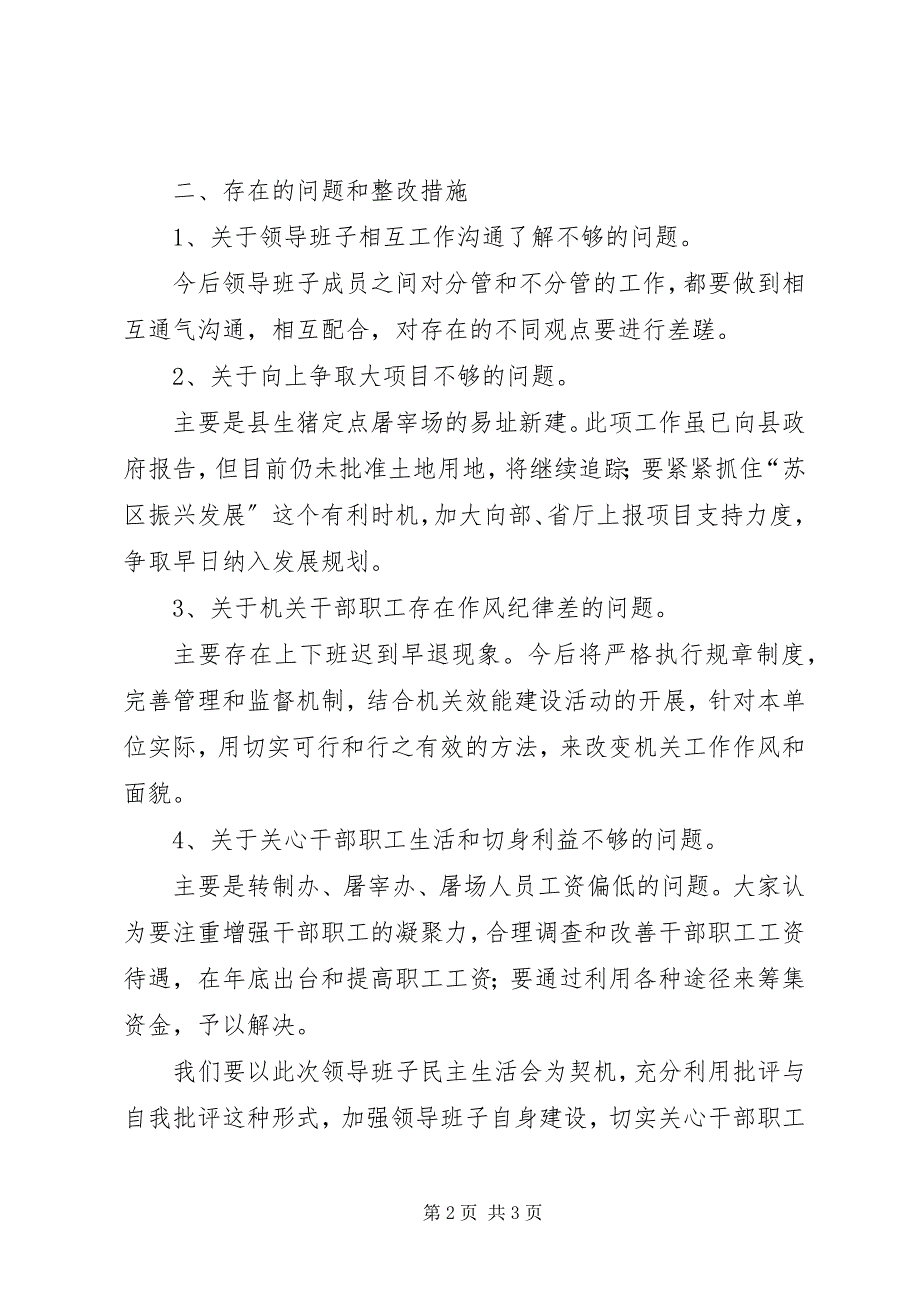 二、存在的问题和整改措施
1、关于领导班子相互工作沟通了解不够的问题。
今后领导班子成员之间对分管和不分管的工作，都要做到相
互通气沟通，相互配合，对存在的不同观点要进行差蹉。
2、关于向上争取大项目不够的问题。
主要是县生猪定点屠宰场的易址新建。此项工作虽已向县政
府报告，但目前仍未批准土地用地，将继续追踪；要紧紧抓住“苏
区振兴发展〞这个有利时机，加大向部、省厅上报项目支持力度，
争取早日纳入发展规划。
3、关于机关干部职工存在作风纪律差的问题。
主要存在上下班迟到早退现象。今后将严格执行规章制度，
完善管理和监督机制，结合机关效能建设活动的开展，针对本单
位实际，用切实可行和行之有效的方法，来改变机关工作作风和
面貌。
4、关于关心干部职工生活和切身利益不够的问题。
主要是转制办、屠宰办、屠场人员工资偏低的问题。大家认
为要注重增强干部职工的凝聚力，合理调查和改善干部职工工资
待遇，在年底出台和提高职工工资；要通过利用各种途径来筹集
资金，予以解决。
我们要以此次领导班子民主生活会为契机，充分利用批评与
自我批评这种形式，加强领导班子自身建设，切实关心干部职工
第2页 共3页